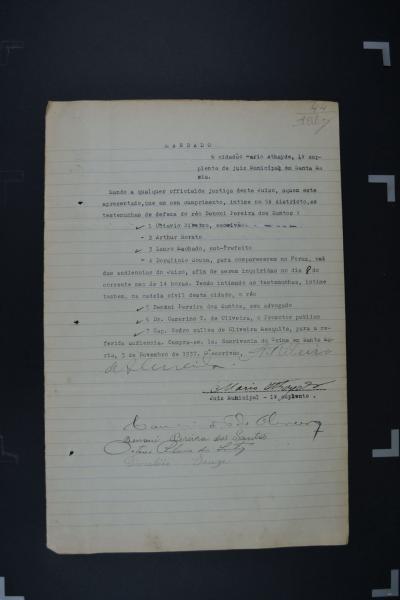 44
MANDADO
O cidadão Mario Athayde, 1º sup-
plente de Juiz Municipal em Santa Ma-
ria.
Mando a qualquer official de justiça deste Juizo, a quem este
apresentado, que em seu cumprimento, intime no 1º districto, as
testemunhas de defesa do réo Demoni Pereira dos Santos :
1 Octavio Ribeiro, escrivão
- 2 Arthur Morato
3 Lauro Machado, sub-Prefeito
- 4 Dorglinio Souza, para comparecerem no Forum, val
das audiencias do Juizo, afim de serem inquiridas no dia 8 do
corrente mez de 14 horas. Tendo intimado as testemunhas, intime
tambem, na cadeia civil desta cidade, o réo
5 Demoni Pereira dos Santos, seu advogado
6 Dr. Camerino T. de Oliveira, o Promotor publico
7 Cap. Pedro de Oliveira Mesquita, para a re-
ferida audiencia. Cumpra-se. Escrivania do Crime em Santa
Maria, 5 de Novembro de 1937. O escrivão,
de Almeida
Mario Athayde
Juiz Municipal - 1º suplente .
de Oliveira
Demoni Pereira dos Santos
Souza